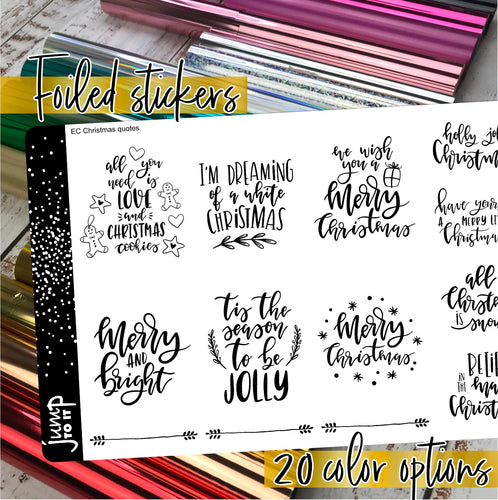 Foiled stickers
EC Christmas quotes
all you
need is
LOVE
and
CHRISTMAS
cookies
I'M DREAMING
of a white
CHRISTMAS
we wish
you a
Merry
Christmas
holly
Christmas
have
A MERRY
Christmas
Merry
AND
bright
'tis the
season
to be
JOLLY
Merry
Christmas
all
is
IN
THE
Jump
TO IT
20 color options